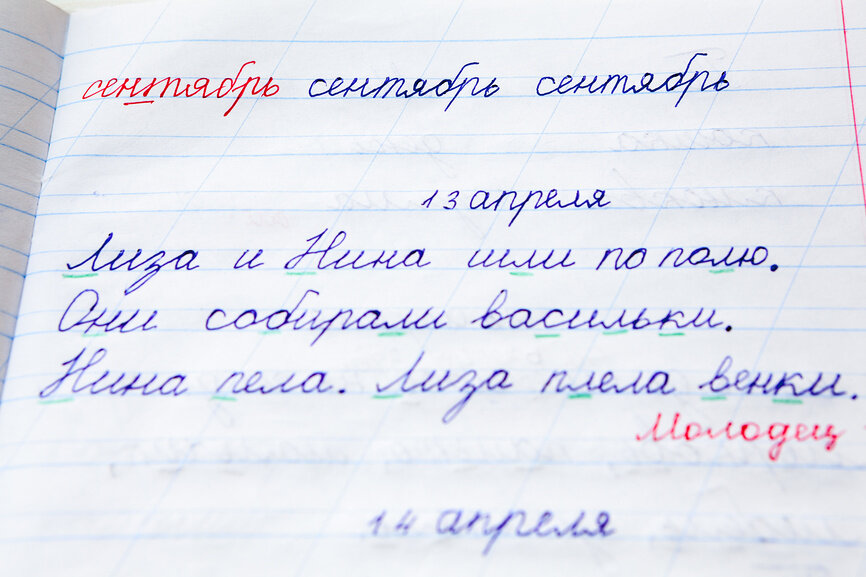 сентябрь сентябрь сентябрь
13 апреля
Лиза и Нина шли по полю.
Они собирали васильки.
Нина пела. Лиза плела венки.
Молодец
14 апреля